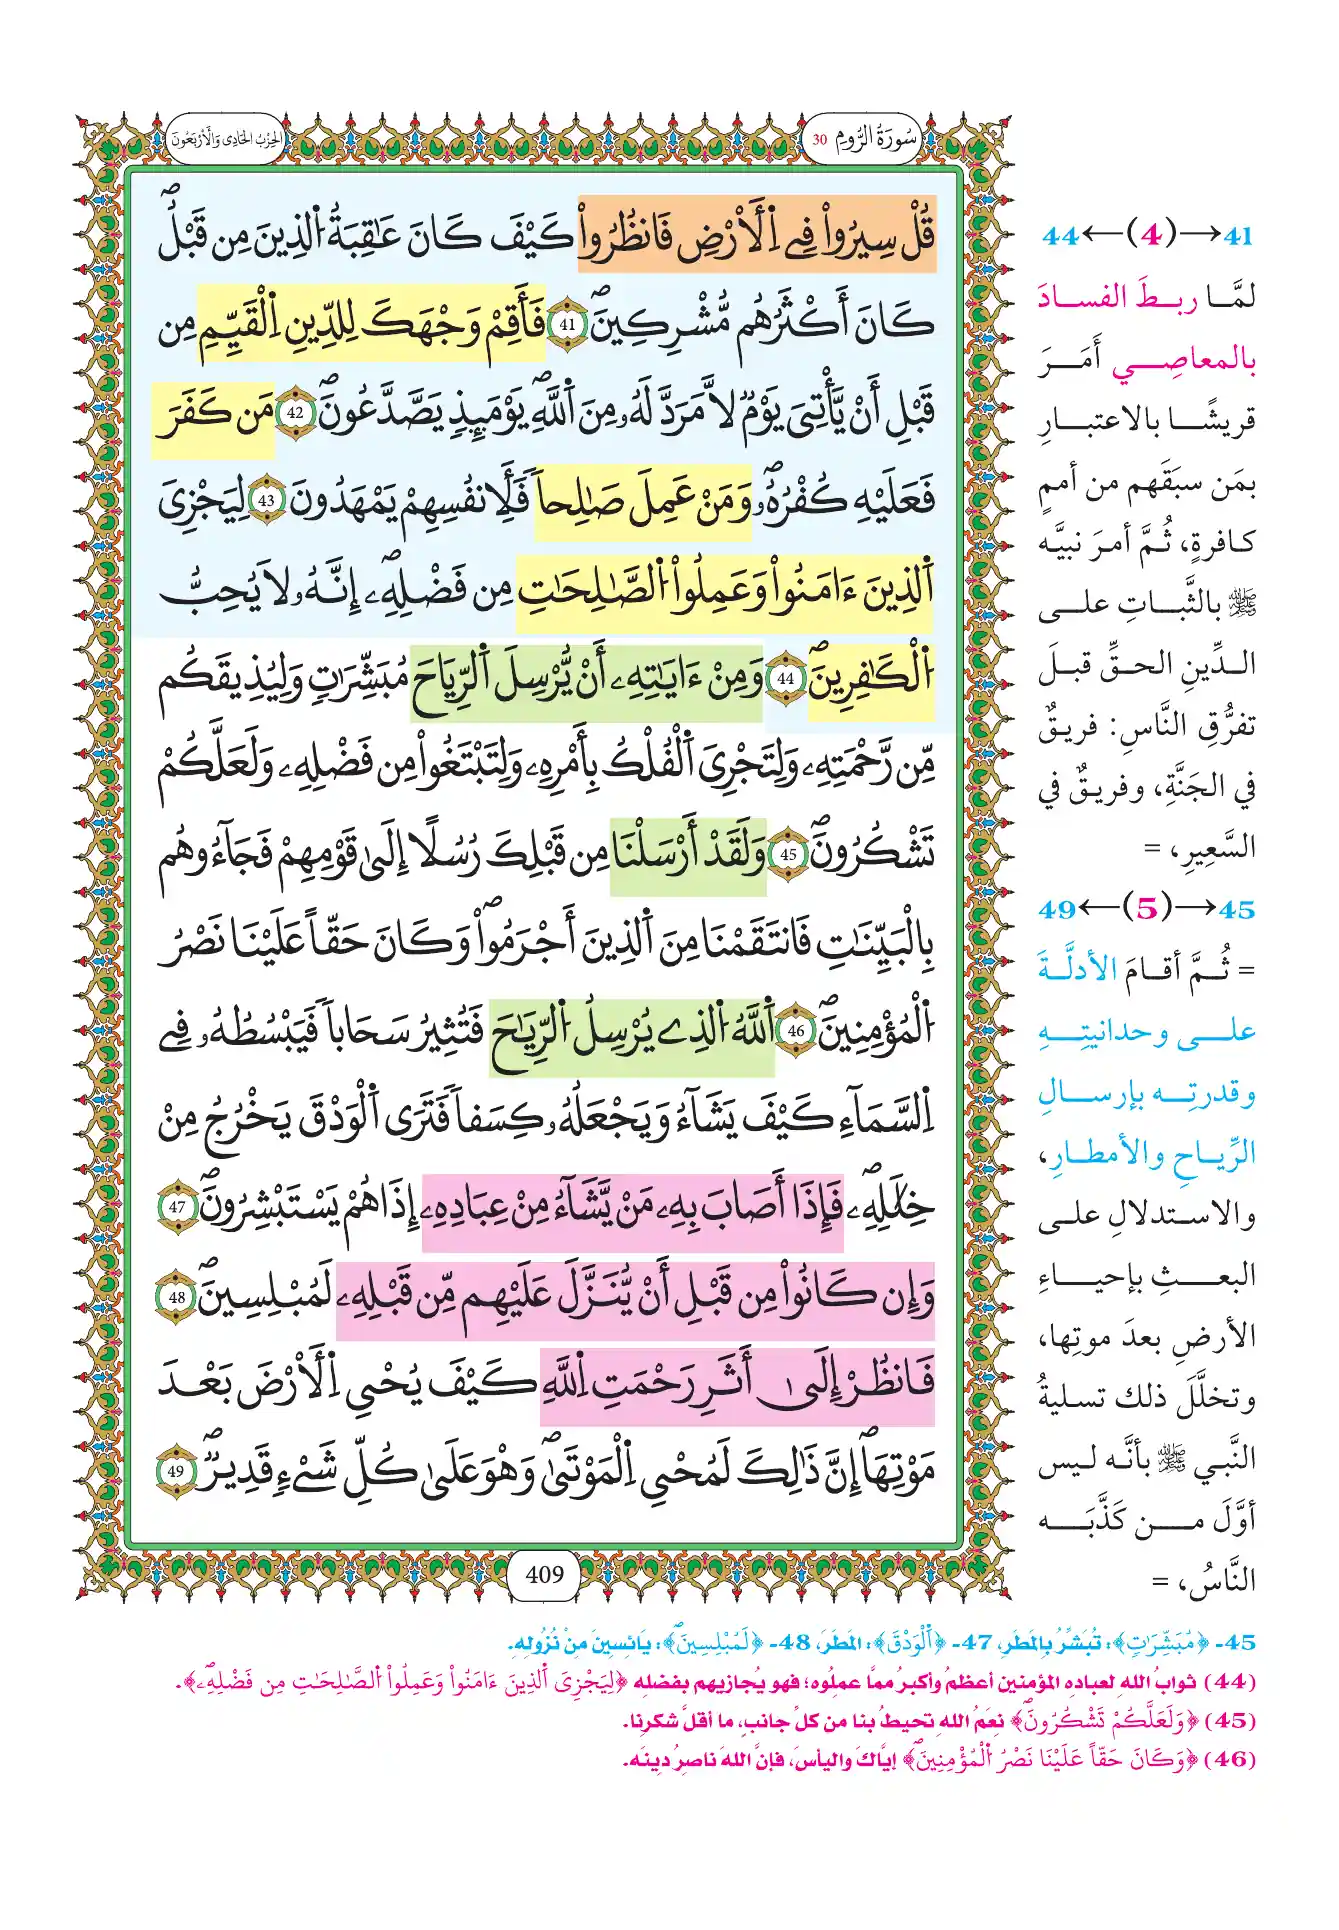 سُورَةُ الرُّومِ 30
الحِزْبُ الحَادِي وَالأَرْبَعُونَ
قُلْ سِيرُواْ فِے اِ۬لَارْضِ فَانظُرُواْ كَيْفَ كَانَ عَٰقِبَةُ اُ۬لذِينَ مِن قَبْلُۖ
كَانَ أَكْثَرُهُم مُّشْرِكِينَۖ 41 فَأَقِمْ وَجْهَكَ لِلدِّينِ اِ۬لْقَيِّمِ مِن
قَبْلِ أَنْ يَّأْتِيَ يَوْمٞ لَّا مَرَدَّ لَهُۥ مِنَ اَ۬للَّهِۖ يَوْمَئِذٖ يَصَّدَّعُونَۖ 42 مَن كَفَرَ
فَعَلَيْهِ كُفْرُهُۥۖ وَمَنْ عَمِلَ صَٰلِحاٗ فَلِأَنفُسِهِمْ يَمْهَدُونَ 43 لِيَجْزِيَ
اَ۬لذِينَ ءَامَنُواْ وَعَمِلُواْ اُ۬لصَّٰلِحَٰتِ مِن فَضْلِهِۦۖ إِنَّهُۥ لَا يُحِبُّ
اُ۬لْكَٰفِرِينَۖ 44 وَمِنْ ءَايَٰتِهِۦ أَنْ يُّرْسِلَ اَ۬لرِّيَاحَ مُبَشِّرَٰتٖ وَلِيُذِيقَكُم
مِّن رَّحْمَتِهِۦ وَلِتَجْرِيَ اَ۬لْفُلْكُ بِأَمْرِهِۦ وَلِتَبْتَغُواْ مِن فَضْلِهِۦ وَلَعَلَّكُمْ
تَشْكُرُونَۖ 45 وَلَقَدْ أَرْسَلْنَا مِن قَبْلِكَ رُسُلًا إِلَىٰ قَوْمِهِمْ فَجَآءُوهُم
بِالْبَيِّنَٰتِ فَانتَقَمْنَا مِنَ اَ۬لذِينَ أَجْرَمُواْۖ وَكَانَ حَقّاً عَلَيْنَا نَصْرُ
اُ۬لْمُؤْمِنِينَۖ 46 اَ۬للَّهُ اُ۬لذِے يُرْسِلُ اُ۬لرِّيَٰحَ فَتُثِيرُ سَحَاباٗ فَيَبْسُطُهُۥ فِے
اِ۬لسَّمَآءِ كَيْفَ يَشَآءُ وَيَجْعَلُهُۥ كِسَفاٗ فَتَرَى اَ۬لْوَدْقَ يَخْرُجُ مِنْ
خِلَٰلِهِۦۖ فَإِذَا أَصَابَ بِهِۦ مَنْ يَّشَآءُ مِنْ عِبَادِهِۦ إِذَا هُمْ يَسْتَبْشِرُونَۖ 47
وَإِن كَانُواْ مِن قَبْلِ أَنْ يُّنَزَّلَ عَلَيْهِم مِّن قَبْلِهِۦ لَمُبْلِسِينَۖ 48
فَانظُرْ إِلَىٰ أَثَرِ رَحْمَتِ اِ۬للَّهِ كَيْفَ يُحْيِ اِ۬لَارْضَ بَعْدَ
مَوْتِهَاۖ إِنَّ ذَٰلِكَ لَمُحْيِ اِ۬لْمَوْتَىٰۖ وَهُوَ عَلَىٰ كُلِّ شَےْءٖ قَدِيرٞۖ 49
409
41→(4)←44
لمَّا ربطَ الفسادَ
بالمعاصِي أَمَرَ
قريشًا بالاعتبارِ
بمَن سبَقَهم من أممٍ
كافرةٍ، ثُمَّ أمرَ نبيَّه
ﷺ بالثَّباتِ على
الدِّينِ الحقِّ قبلَ
تفرُّقِ النَّاسِ: فريقٌ
في الجَنَّةِ، وفريقٌ في
السَّعِيرِ، =
45→(5)←49
= ثُمَّ أقامَ الأدلَّةَ
على وحدانيتِهِ
وقدرتِه بإرسالِ
الرِّياحِ والأمطارِ،
والاستدلالِ على
البعثِ بإحياءِ
الأرضِ بعدَ موتِها،
وتخلَّلَ ذلك تسليةُ
النَّبي ﷺ بأنَّه ليس
أوَّلَ من كَذَّبَه
النَّاسُ، =
45- ﴿مُبَشِّرَٰتٖ﴾: تُبَشِّرُ بِالمَطَرِ، 47- ﴿اَ۬لْوَدْقَ﴾: المَطَرَ، 48- ﴿لَمُبْلِسِينَۖ﴾: يَائِسِينَ مِنْ نُزُولِهِ.
(44) ثوابُ اللهِ لعبادِه المؤمنين أعظمُ وأكبرُ ممَّا عملُوه؛ فهو يُجازيهم بفضلِه ﴿لِيَجْزِيَ اَ۬لذِينَ ءَامَنُواْ وَعَمِلُواْ اُ۬لصَّٰلِحَٰتِ مِن فَضْلِهِۦۖ﴾.
(45) ﴿وَلَعَلَّكُمْ تَشْكُرُونَۖ﴾ نِعَمُ اللهِ تحيطُ بنا من كلِّ جانبٍ، ما أقلَّ شكرنا.
(46) ﴿وَكَانَ حَقّاً عَلَيْنَا نَصْرُ اُ۬لْمُؤْمِنِينَۖ﴾ إيَّاكَ واليأسَ، فإنَّ اللهَ ناصرُ دِينَه.